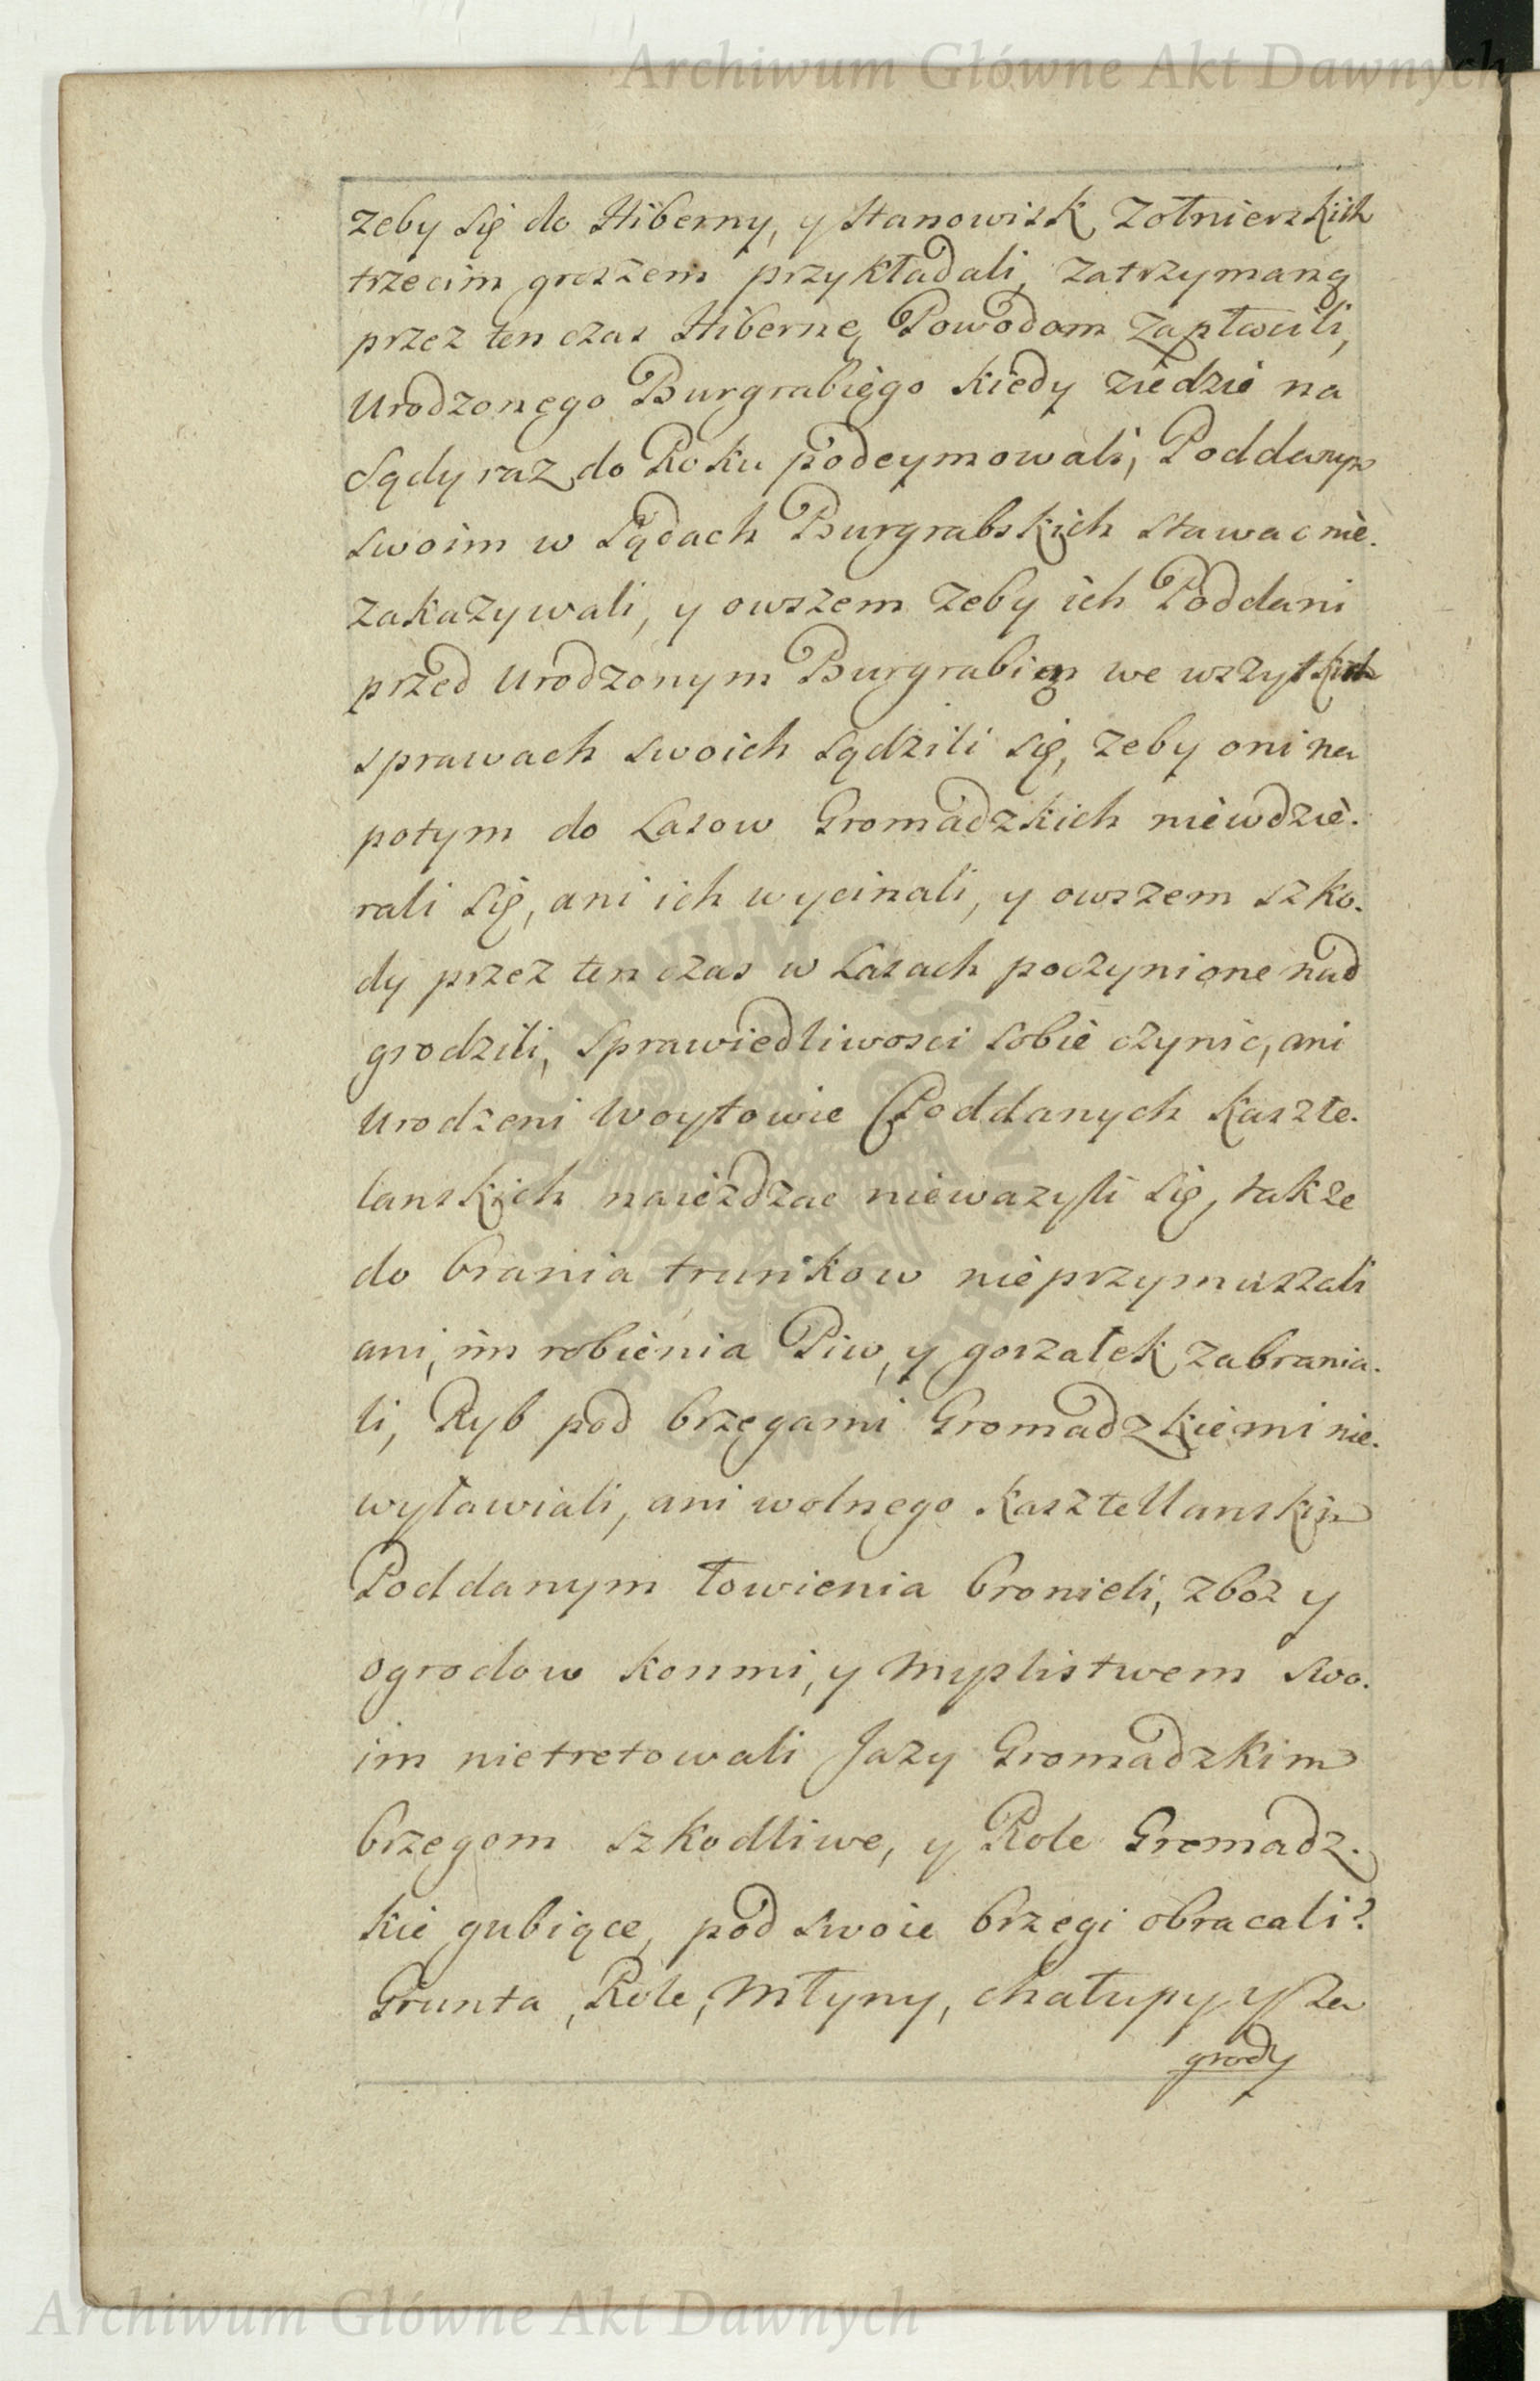 Archiwum Główne Akt Dawnych
zeby się do Hiberny, y Stanowisk Zołnierskich
trzecim groszem przykładali, zatrzymaną
przez ten czas Hibernę Powodom zapłacili,
Urodzonego Burgrabiego kiedy ziedzie na
Sądy raz do Roku podeymowali, Poddanym
swoim w Sądach Burgrabskich stawac nie.
zakazywali, y owszem zeby ich Poddani
przed Urodzonym Burgrabią we wszystkich
sprawach swoich sądzili się, zeby oni na
potym do Lasow Gromadzkich niewdzie.
rali się, ani ich wycinali, y owszem szko.
dy przez ten czas w Lasach poczynione nad
grodzili, sprawiedliwosci sobie czynic, ani
Urodzeni Woytowie Poddanych Kaszte.
lanskich naiezdzac niewazyli się, takze
do brania trunkow nieprzymuszali
ani im robienia Piw, y gorzałek zabrania.
li, Ryb pod brzegami Gromadzkiemi nie.
wyławiali, ani wolnego Kasztellanskim
Poddanym łowienia bronieli, zboz y
ogrodow konmi, y Myslistwem swo.
im nietretowali Jazy Gromadzkim
brzegom szkodliwe, y Role Gromadz.
kie gubiące, pod swoie brzegi obracali?
Grunta, Role, Młyny, chałupy y Za
grody
Archiwum Główne Akt Dawnych